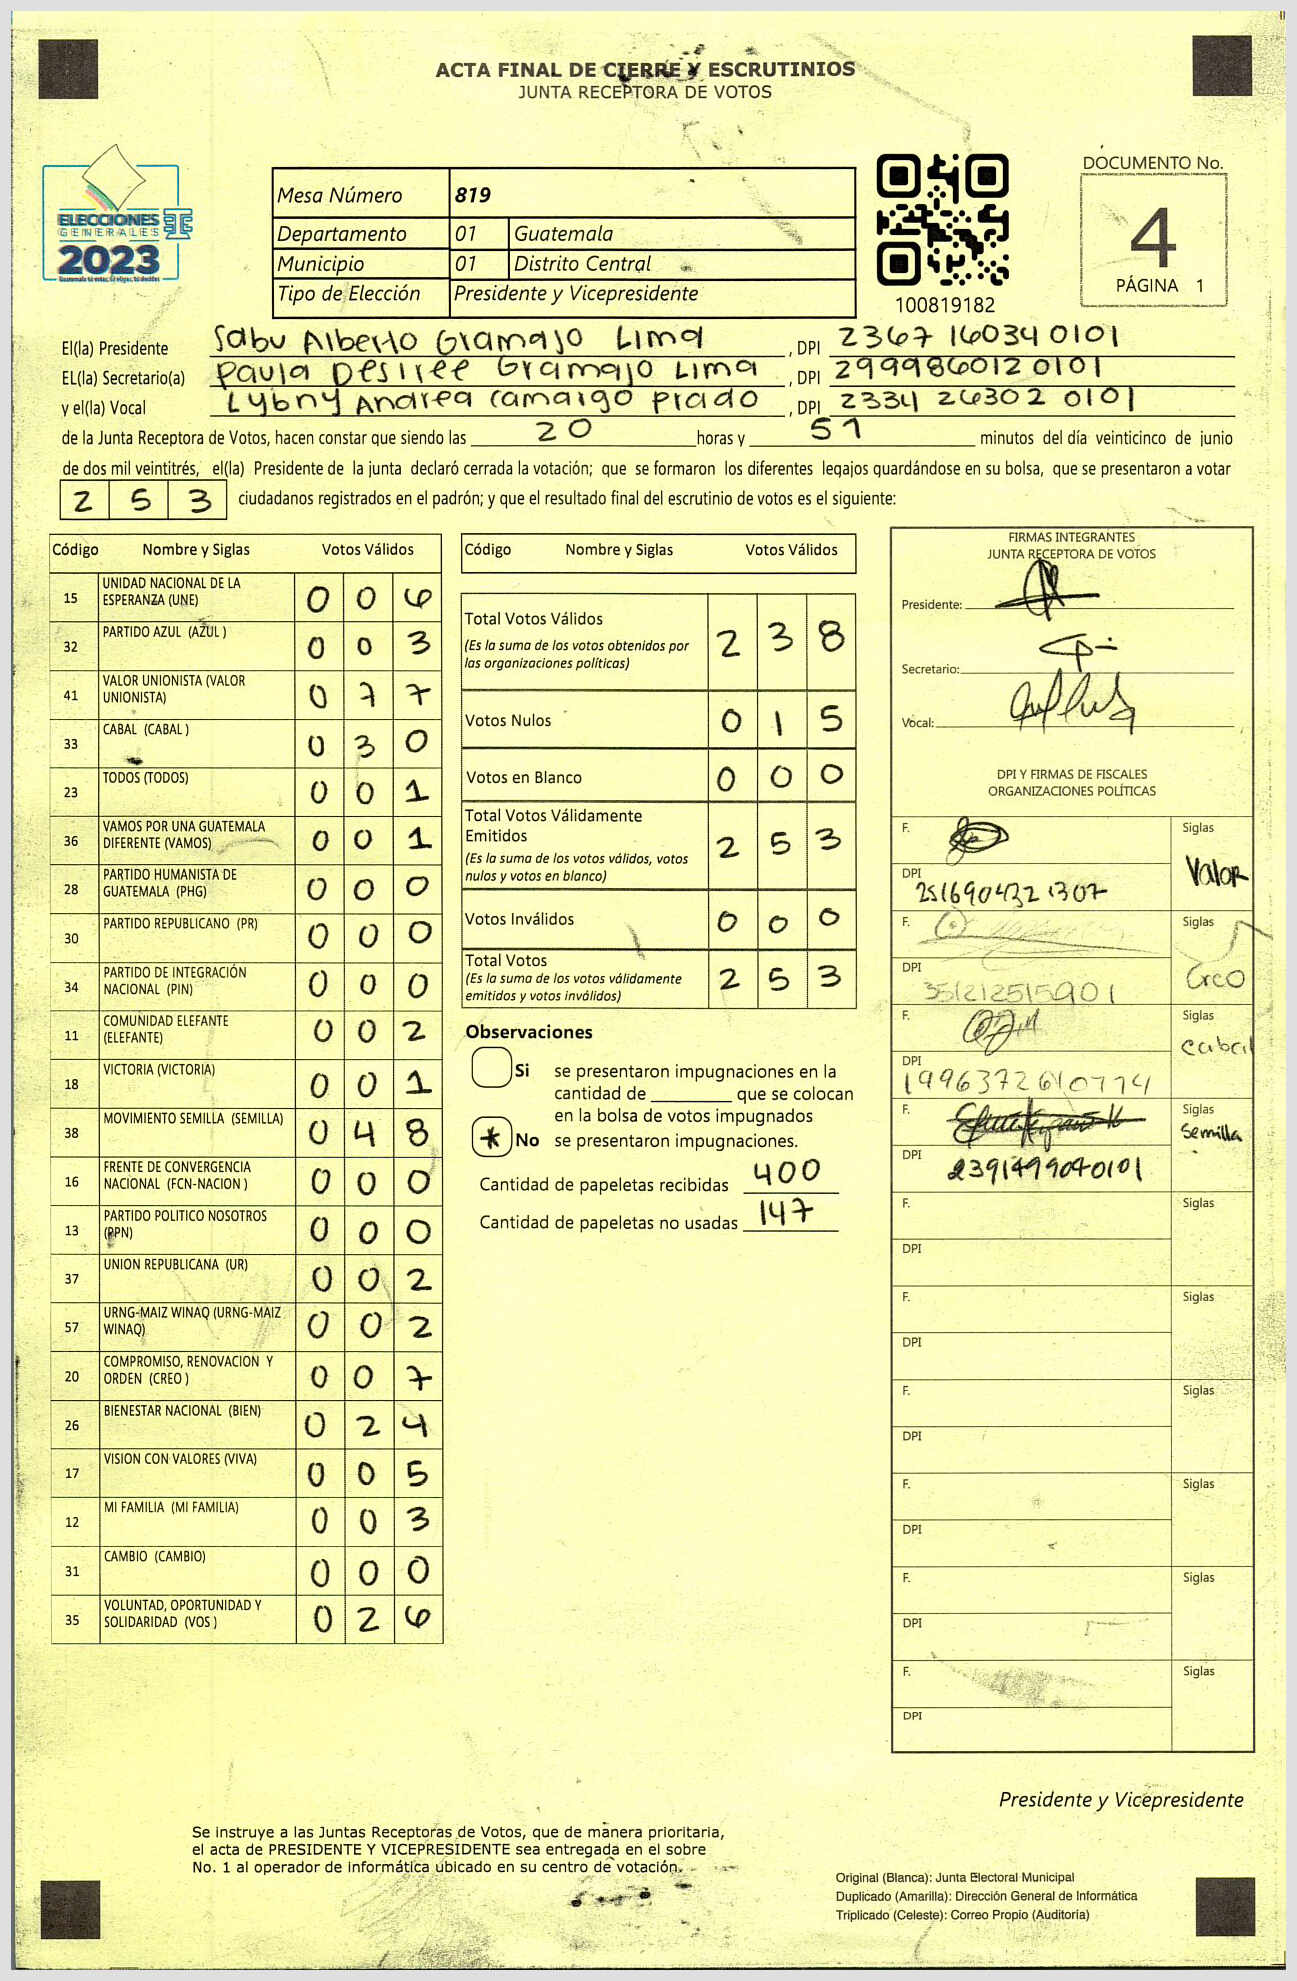 ACTA FINAL DE CIERRE Y ESCRUTINIOS
JUNTA RECEPTORA DE VOTOS
ELECCIONES
GENERALES
2023
Mesa Número 819
Departamento 01 Guatemala
Municipio 01 Distrito Central
Tipo de Elección Presidente y Vicepresidente
100819182
DOCUMENTO No.
4
PÁGINA 1
El(la) Presidente Sabu Alberto Gramajo Lima, DPI 2367 16034 0101
EL(la) Secretario(a) Paula Desiree Gramajo Lima, DPI 299986012 0101
y el(la) Vocal Lybny Andrea Camargo Prado, DPI 2334 26302 0101
de la Junta Receptora de Votos, hacen constar que siendo las 20 horas y 51 minutos del día veinticinco de junio
de dos mil veintitrés, el(la) Presidente de la junta declaró cerrada la votación; que se formaron los diferentes legajos guardándose en su bolsa, que se presentaron a votar
2 5 3 ciudadanos registrados en el padrón; y que el resultado final del escrutinio de votos es el siguiente:
Código Nombre y Siglas Votos Válidos
15 UNIDAD NACIONAL DE LA ESPERANZA (UNE) 0 0 6
32 PARTIDO AZUL (AZUL ) 0 0 3
41 VALOR UNIONISTA (VALOR UNIONISTA) 0 7 7
33 CABAL (CABAL ) 0 3 0
23 TODOS (TODOS) 0 0 1
36 VAMOS POR UNA GUATEMALA DIFERENTE (VAMOS) 0 0 1
28 PARTIDO HUMANISTA DE GUATEMALA (PHG) 0 0 0
30 PARTIDO REPUBLICANO (PR) 0 0 0
34 PARTIDO DE INTEGRACIÓN NACIONAL (PIN) 0 0 0
11 COMUNIDAD ELEFANTE (ELEFANTE) 0 0 2
18 VICTORIA (VICTORIA) 0 0 1
38 MOVIMIENTO SEMILLA (SEMILLA) 0 4 8
16 FRENTE DE CONVERGENCIA NACIONAL (FCN-NACION ) 0 0 0
13 PARTIDO POLITICO NOSOTROS (PPN) 0 0 0
37 UNION REPUBLICANA (UR) 0 0 2
57 URNG-MAIZ WINAQ (URNG-MAIZ WINAQ) 0 0 2
20 COMPROMISO, RENOVACION Y ORDEN (CREO ) 0 0 7
26 BIENESTAR NACIONAL (BIEN) 0 2 4
17 VISION CON VALORES (VIVA) 0 0 5
12 MI FAMILIA (MI FAMILIA) 0 0 3
31 CAMBIO (CAMBIO) 0 0 0
35 VOLUNTAD, OPORTUNIDAD Y SOLIDARIDAD (VOS ) 0 2 6
Código Nombre y Siglas Votos Válidos
Total Votos Válidos 2 3 8
(Es la suma de los votos obtenidos por
las organizaciones políticas)
Votos Nulos 0 1 5
Votos en Blanco 0 0 0
Total Votos Válidamente
Emitidos 2 5 3
(Es la suma de los votos válidos, votos
nulos y votos en blanco)
Votos Inválidos 0 0 0
Total Votos 2 5 3
(Es la suma de los votos válidamente
emitidos y votos inválidos)
Observaciones
Si se presentaron impugnaciones en la
cantidad de ________ que se colocan
en la bolsa de votos impugnados
* No se presentaron impugnaciones.
Cantidad de papeletas recibidas 400
Cantidad de papeletas no usadas 147
FIRMAS INTEGRANTES
JUNTA RECEPTORA DE VOTOS
Presidente:
Secretario:
Vocal:
DPI Y FIRMAS DE FISCALES
ORGANIZACIONES POLÍTICAS
F. Siglas
Valor
DPI 251690432 1307
F. Siglas
Creo
DPI 351212515901
F. Siglas
cabal
DPI 1996372610774
F. Siglas
Semilla
DPI 2391499040101
F. Siglas
DPI
F. Siglas
DPI
F. Siglas
DPI
F. Siglas
DPI
F. Siglas
DPI
F. Siglas
DPI
Presidente y Vicepresidente
Se instruye a las Juntas Receptoras de Votos, que de manera prioritaria,
el acta de PRESIDENTE Y VICEPRESIDENTE sea entregada en el sobre
No. 1 al operador de informática ubicado en su centro de votación.
Original (Blanca): Junta Electoral Municipal
Duplicado (Amarilla): Dirección General de Informática
Triplicado (Celeste): Correo Propio (Auditoría)